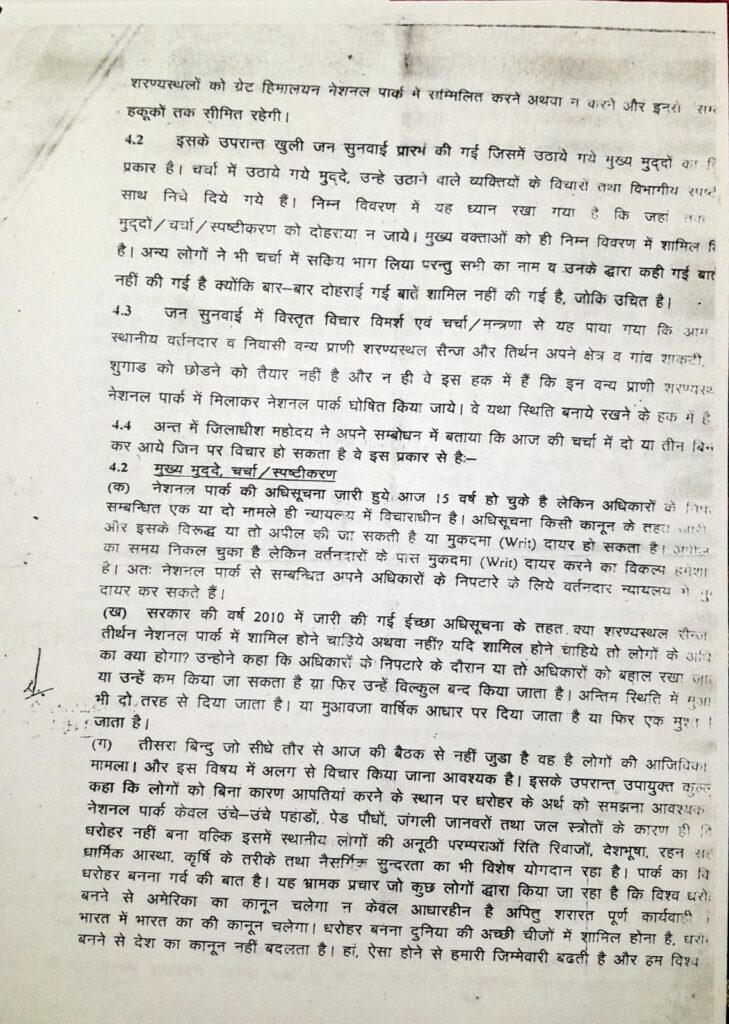 शरण्यस्थलों को ग्रेट हिमालयन नेशनल पार्क मे सम्मिलित करने अथवा न करने और इनसे
हकूकों तक सीमित रहेगी।
4.2 इसके उपरान्त खुली जन सुनवाई प्रारभं की गई जिसमें उठाये गये मुख्य मुद्दों का
प्रकार है। चर्चा में उठाये गये मुद्दे, उन्हे उठाने वाले व्यक्तियों के विचारों तथा विभागीय
साथ निचे दिये गये हैं। निम्न विवरण में यह ध्यान रखा गया है कि जहां तक
मुद्दों/चर्चा/स्पष्टीकरण को दोहराया न जाये। मुख्य वक्ताओं को ही निम्न विवरण में शामिल
है। अन्य लोगों ने भी चर्चा में सकिय भाग लिया परन्तु सभी का नाम व उनके द्धारा कही गई बातें
नहीं की गई है क्योंकि बार–बार दोहराई गई बातें शामिल नहीं की गई है, जोकि उचित है।
4.3 जन सुनवाई में विस्तृत विचार विमर्श एवं चर्चा/मन्त्रणा से यह पाया गया कि आम
स्थानीय वर्तनदार व निवासी वन्य प्राणी शरण्यस्थल सैन्ज और तिर्थन अपने क्षेत्र व गांव शाकटी,
शुगाड को छोडने को तैयार नहीं है और न ही वे इस हक में हैं कि इन वन्य प्राणी
नेशनल पार्क में मिलाकर नेशनल पार्क घोषित किया जाये। वे यथा स्थिति बनाये रखने के हक में है
4.4 अन्त में जिलाधीश महोदय ने अपने सम्बोधन में बताया कि आज की चर्चा में दो या तीन
कर आये जिन पर विचार हो सकता है वे इस प्रकार से है:–
4.2 मुख्य मुददे, चर्चा/स्पष्टीकरण
(क) नेशनल पार्क की अधिसूचना ज़ारी हुये आज 15 वर्ष हो चुके है लेकिन अधिकारों के
सम्बन्धित एक या दो मामले ही न्यायल्य में विचाराधीन है। अधिसूचना किसी कानून के तहत जारी
और इसके विरूद्ध या तो अपील की जा सकती है या मुकदमा (Writ) दायर हो सकता है।
का समय निकल चुका है लेकिन वर्तनदारों के पास मुकदमा (Writ) दायर करने का विकल्प हमेशा
है। अतः नेशनल पार्क से सम्बन्धित अपने अधिकारों के निपटारे के लिये वर्तनदार न्यायलय मे
दायर कर सकते हैं।
(ख) सरकार की वर्ष 2010 में जारी की गई ईच्छा अधिसूचना के तहत क्या शरण्यस्थल सैन्ज
तीर्थन नेशनल पार्क में शामिल होने चाहिये अथवा नहीं? यदि शामिल होने चाहिये तो लोगों के
का क्या होगा? उन्होने कहा कि अधिकारों के निपटारे के दौरान या तो अधिकारों को बहाल रखा
या उन्हें कम किया जा सकता है या फिर उन्हें विल्कुल बन्द किया जाता है। अन्तिम स्थिति में
भी दो तरह से दिया जाता है। या मुआवजा वार्षिक आधार पर दिया जाता है या फिर एक
जाता है।
(ग) तीसरा बिन्दु जो सीधे तौर से आज की बैठक से नहीं जुडा है वह है लोगों की आजिविका
मामला। और इस विषय में अलग से विचार किया जाना आवश्यक है। इसके उपरान्त उपायुक्त
कहा कि लोगों को बिना कारण आपतियां करने के स्थान पर धरोहर के अर्थ को समझना आवश्यक
नेशनल पार्क केवल उंचे–उंचे पहाडों, पेड पौधों, जंगली जानवरों तथा जल स्त्रोतों के कारण ही
धरोहर नहीं बना वल्कि इसमें स्थानीय लोगों की अनूठी परम्पराओं रिति रिवाजों, देशभूषा, रहन
धार्मिक आस्था, कृर्षि के तरीके तथा नैसर्गिक सुन्दरता का भी विशेष योगदान रहा है। पार्क का
धरोहर बनना गर्व की बात है। यह भ्रामक प्रचार जो कुछ लोगों द्धारा किया जा रहा है कि विश्व
बनने से अमेरिका का कानून चलेगा न केवल आधारहीन है अपितु शरारत पूर्ण कार्यवाही
भारत में भारत का की कानून चलेगा। धरोहर बनना दुनिया की अच्छी चीजों में शामिल होना है,
बनने से देश का कानून नहीं बदलता है। हां, ऐसा होने से हमारी जिम्मेवारी बढती है और हम विश्व